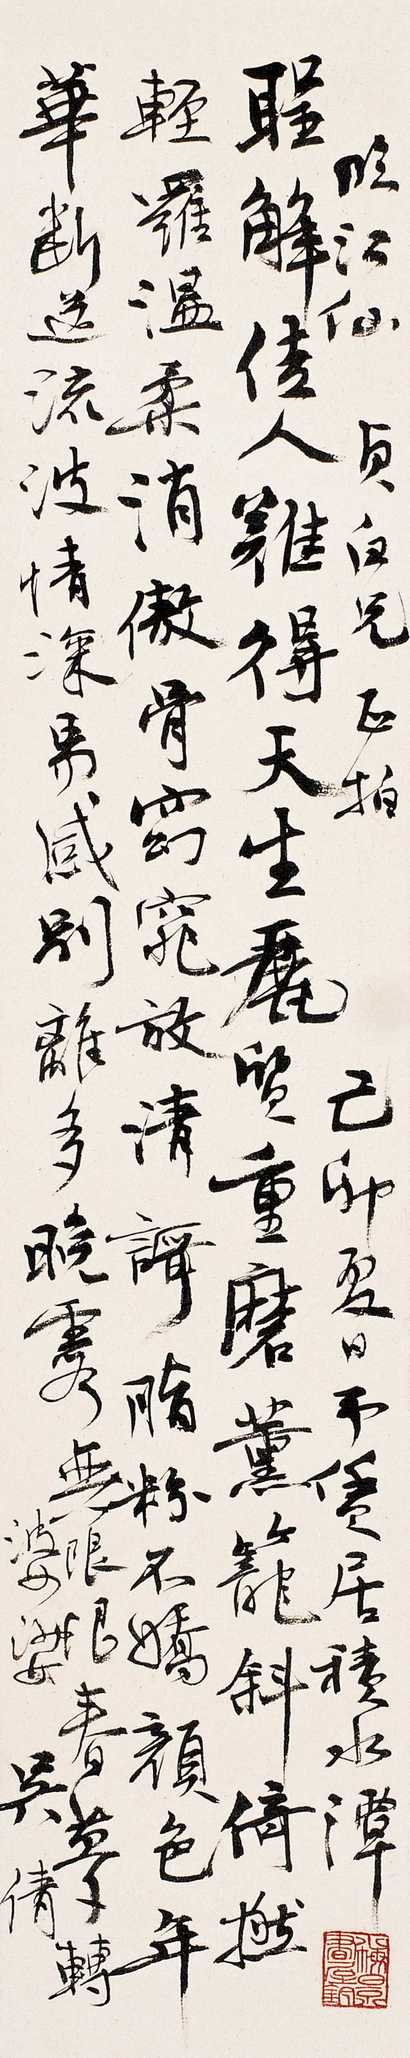 臨江仙 貞白兄正拍 己卯夏日予賃居積水潭
聖解佳人難得天生麗質重磨薰籠斜倚撚
輕羅溫柔消傲骨窈窕放清謌脂粉不嬌顏色年
華斷送流波情深易感別離多晚霞無限恨春夢轉
婆娑 吳倩